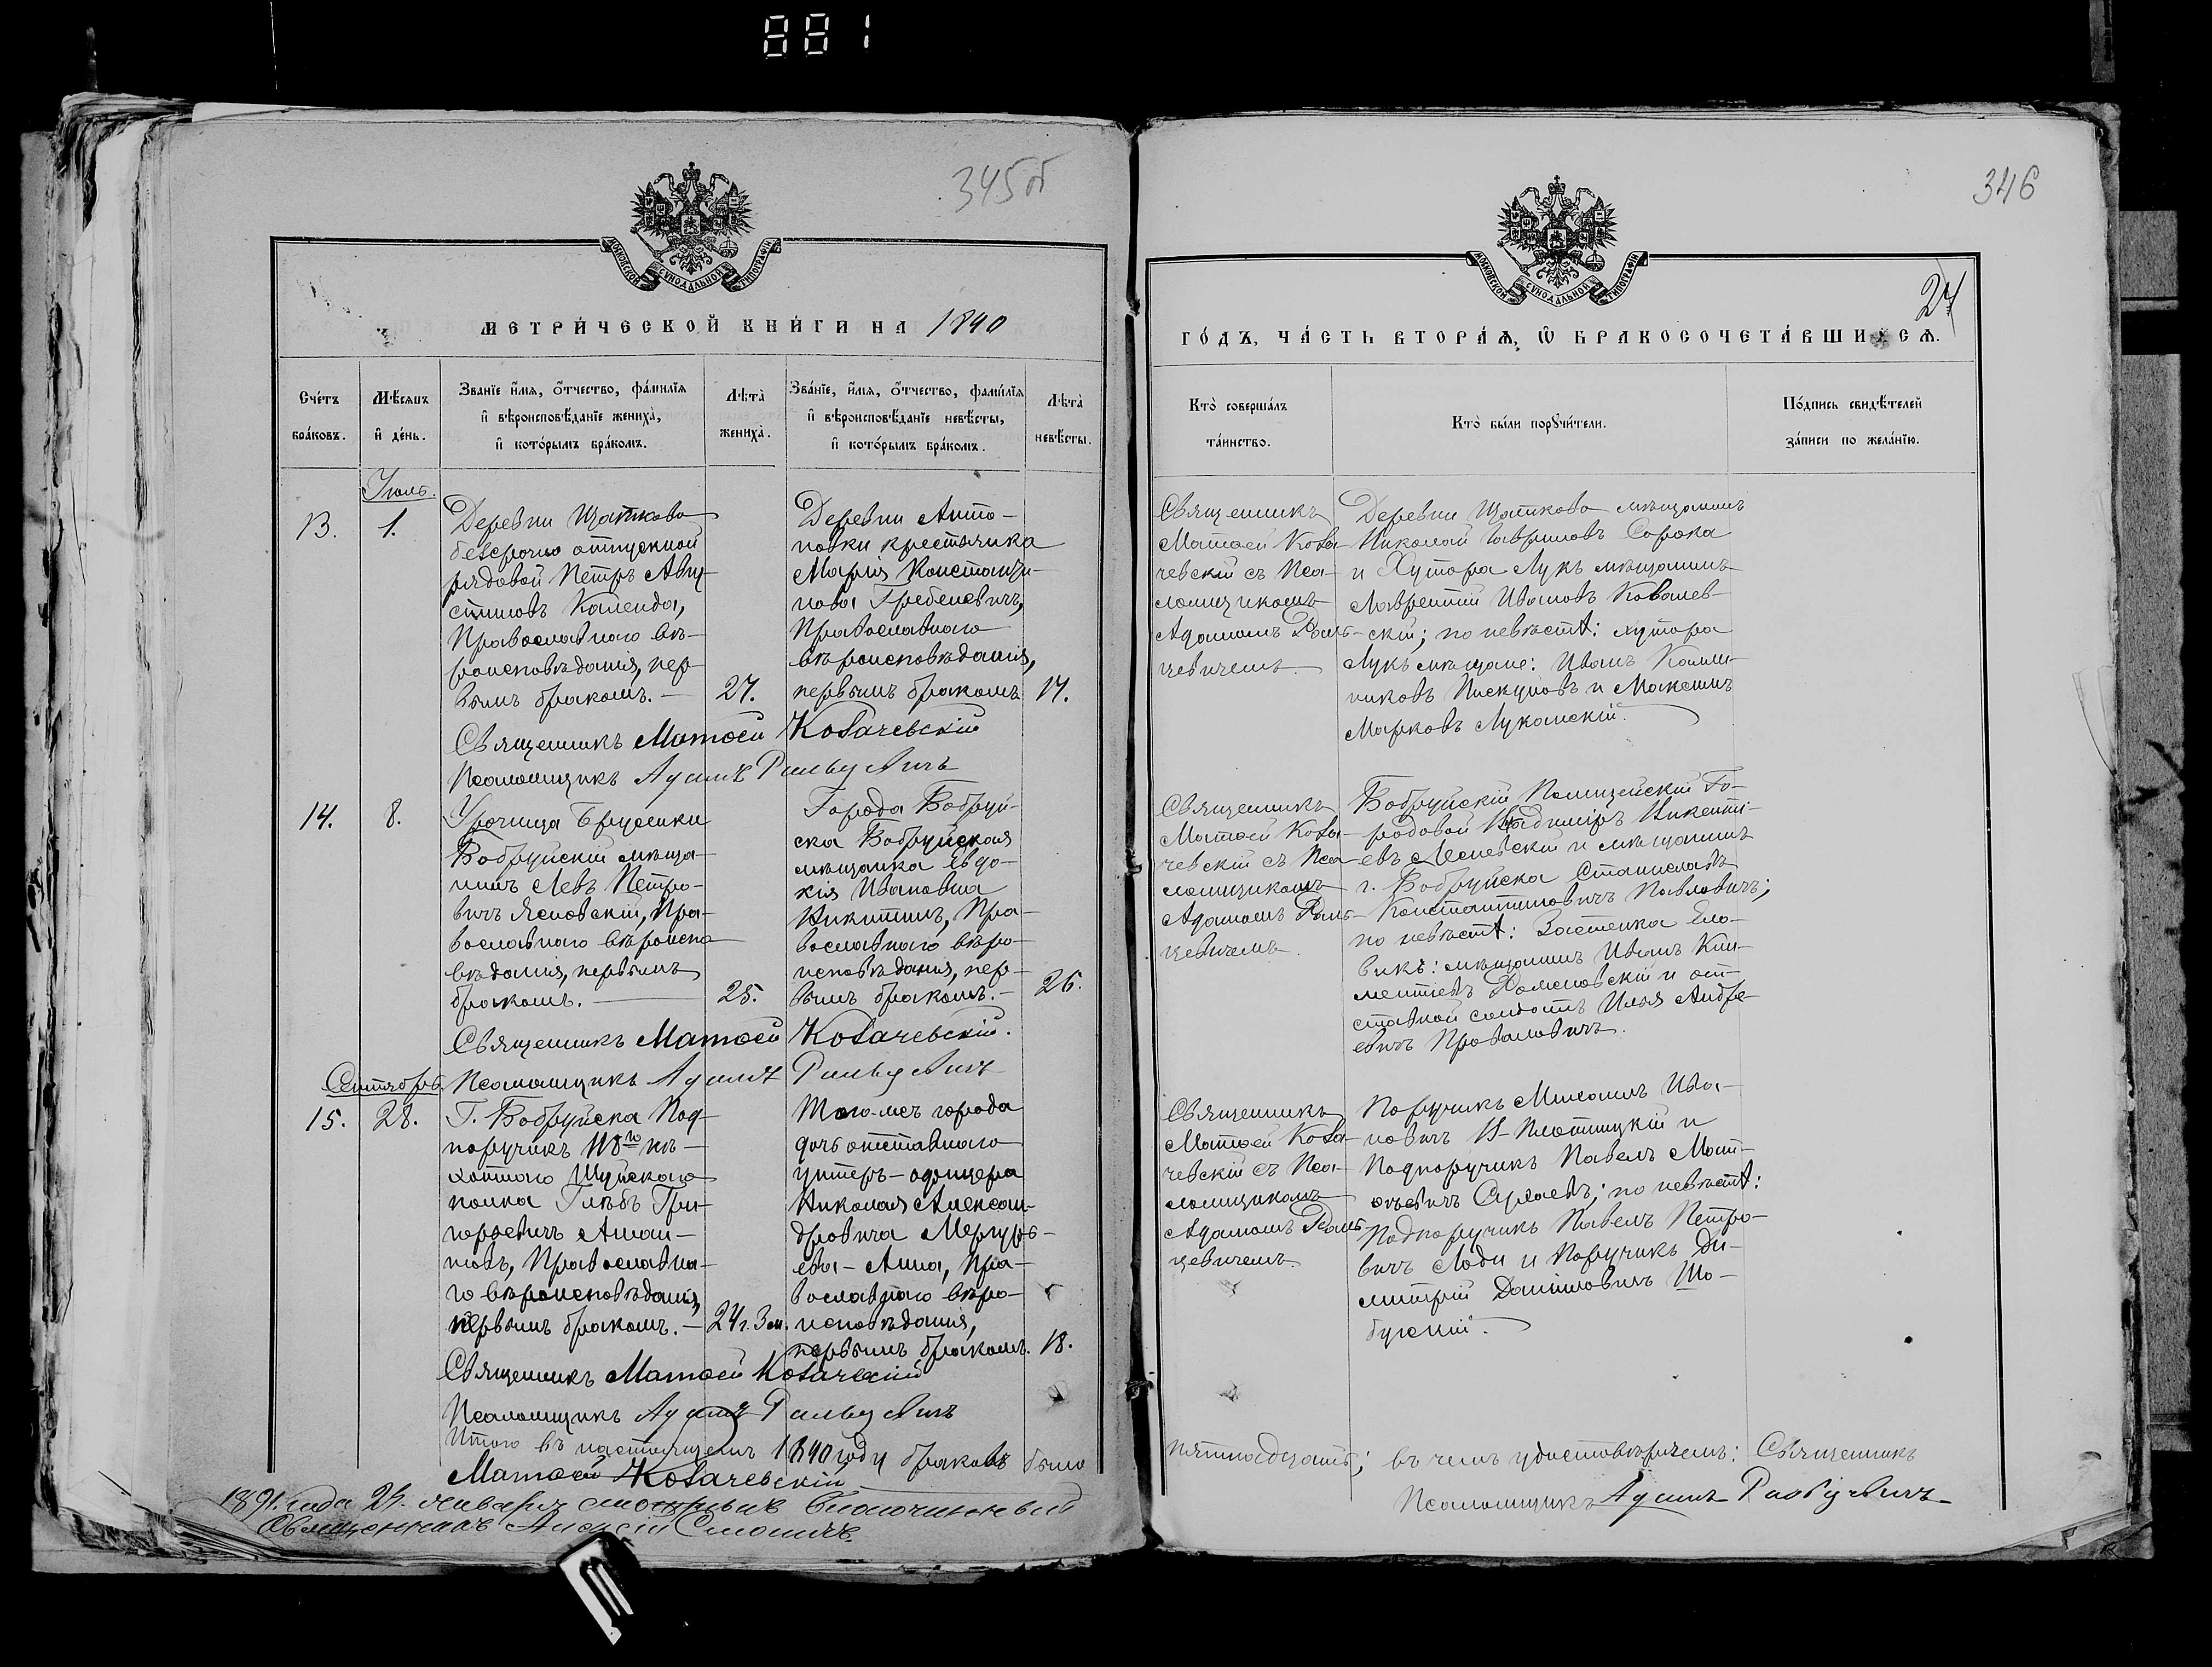 881
345об
МОСКОВСКОЙ СУНОДАЛЬНОЙ ТИПОГРАФІИ
МЕТРИ́ЧЕСКОЙ КНИ́ГИ НА 1890
Сче́тъ бра́ковъ.
Мѣ́сяцъ и҆ де́нь.
Зва́нїе и҆́мя, ѻ҆́тчество, фами́лїя
и҆ вѣроисповѣ́данїе жениха̀,
и҆ кото́рымъ бра́комъ.
Лѣта̀ жениха̀.
Зва́нїе, и҆́мя, ѻ҆́тчество, фами́лїя
и҆ вѣроисповѣ́данїе невѣ́сты,
и҆ кото́рымъ бра́комъ.
Лѣта̀ невѣ́сты.
Іюль.
13.
1.
Деревни Щатково
безсрочно отпускной
рядовой Петръ Авгу-
стиновъ Календа,
Православнаго вѣ-
роисповѣданія, пер-
вымъ бракомъ. —
27.
Деревни Анто-
новки крестьянка
Марія Константи-
нова Гребеневичъ,
Православнаго
вѣроисповѣданія,
первымъ бракомъ
17.
Священникъ Матѳей Ковачевскій
Псаломщикъ Адамъ
14.
8.
Урочища
Бобруйскій мѣща-
нинъ Левъ Петро-
вичъ Ясновскій, Пра-
вославнаго вѣроиспо
вѣданія, первымъ
бракомъ. —
25.
Города Бобруй-
ска Бобруйская
мѣщанка Евдо-
кія Ивановна
Никитинъ, Пра-
вославнаго вѣро-
исповѣданія, пер-
вымъ бракомъ. —
26.
Священникъ Матѳей Ковачевскій.
Сентябрь.
Псаломщикъ Адамъ
15.
28.
Г. Бобруйска Под-
поручикъ 118го пѣ-
хотнаго Шуйскаго
полка Глѣбъ Гри-
горьевичъ
Православна-
го вѣроисповѣданія,
первымъ бракомъ. —
24 г. 3 м.
Того-же города
дочь отставного
унтеръ-офицера
Николая Алексан-
дровича Меркурь-
ева – Анна, Пра-
вославнаго вѣро-
исповѣданія,
первымъ бракомъ.
18.
Священникъ Матѳей Ковачевскій
Псаломщикъ Адамъ
Итого въ настоящемъ 1890 году браковъ было
Матѳей Ковачевскій
1891 года 27 января смотрѣлъ благочинный
Священникъ Алексій
346
27
МОСКОВСКОЙ СУНОДАЛЬНОЙ ТИПОГРАФІИ
ГО́ДЪ, ЧА́СТЬ ВТОРА́Я, Ѡ҆ БРАКОСОЧЕТА́ВШИХСЯ.
Кто̀ соверша́лъ та́инство.
Кто̀ бы́ли порꙋчи́тели.
По́дпись свидѣ́телей
за́писи по жела́нїю.
Священникъ
Матѳей Кова-
чевскій съ Пса-
ломщикомъ
Адамомъ
цевичемъ
Деревни Щатково мѣщанинъ
Николай Гавриловъ Сорока
и Хутора Лукъ мѣщанинъ
Лаврентій Ивановъ Ковалев-
скій; по невѣстѣ: хутора
Лукъ мѣщане: Иванъ Калли-
никовъ Пискуновъ и Максимъ
Марковъ Луканскій.
Священникъ
Матѳей Кова-
чевскій съ Пса-
ломщикомъ
Адамомъ
цевичемъ
Бобруйскій Полицейскій Го-
родовой Владиміръ Викенті-
евъ Лесневскій и мѣщанинъ
г. Бобруйска Станиславъ
Константиновичъ Павловичъ;
по невѣстѣ: Застенка Ело-
викъ: мѣщанинъ Иванъ Кли-
ментіевъ и от-
ставной солдатъ Илья Андре-
евичъ Проваловичъ.
Священникъ
Матѳей Кова-
чевскій съ Пса-
ломщикомъ
Адамомъ
цевичемъ
Поручикъ Михаилъ Ива-
новичъ и
Подпоручикъ Павелъ Мат-
ѳѣевичъ по невѣстѣ:
Подпоручикъ Павелъ Петро-
вичъ Лоди и Поручикъ Ди-
митрій Даниловичъ Шо-
бускій.
пятнадцать; въ чемъ удостовѣряемъ: Священникъ
Псаломщикъ Адамъ